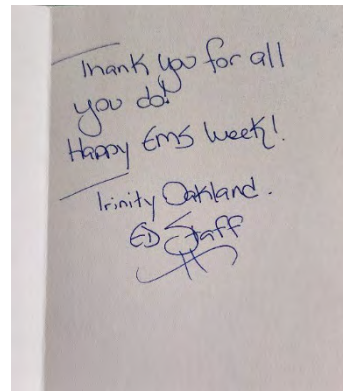 Thank you for all
you do!
Happy EMS Week!
Trinity Oakland.
ED Staff